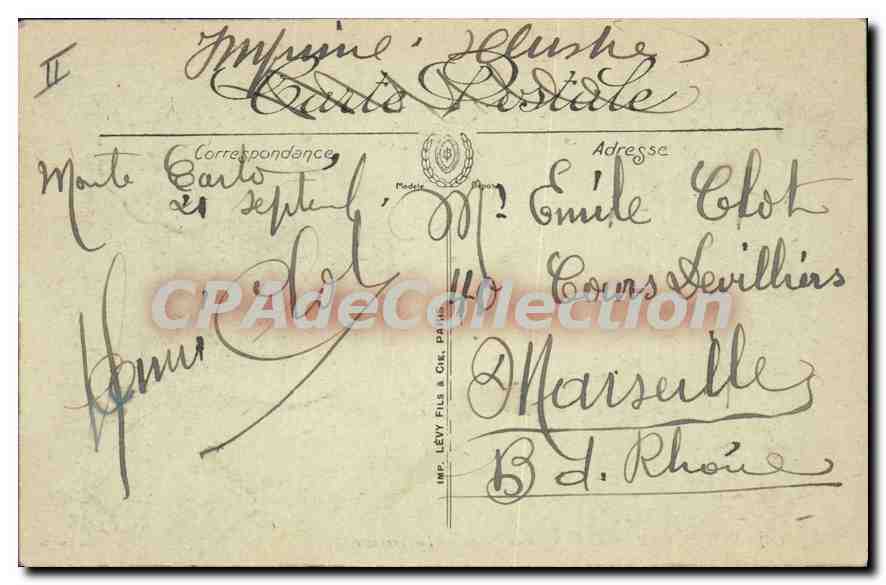 II
Imprimé illustré
Carte Postale
Correspondance
Adresse
Modèle Déposé
Monte Carlo
21 Septemb.
Clot
Mr. Emile Clot
110 Cours Devilliers
Marseille
B d. Rhône
IMP. LÉVY FILS & CIE, PARIS
CPAdeCollection.com